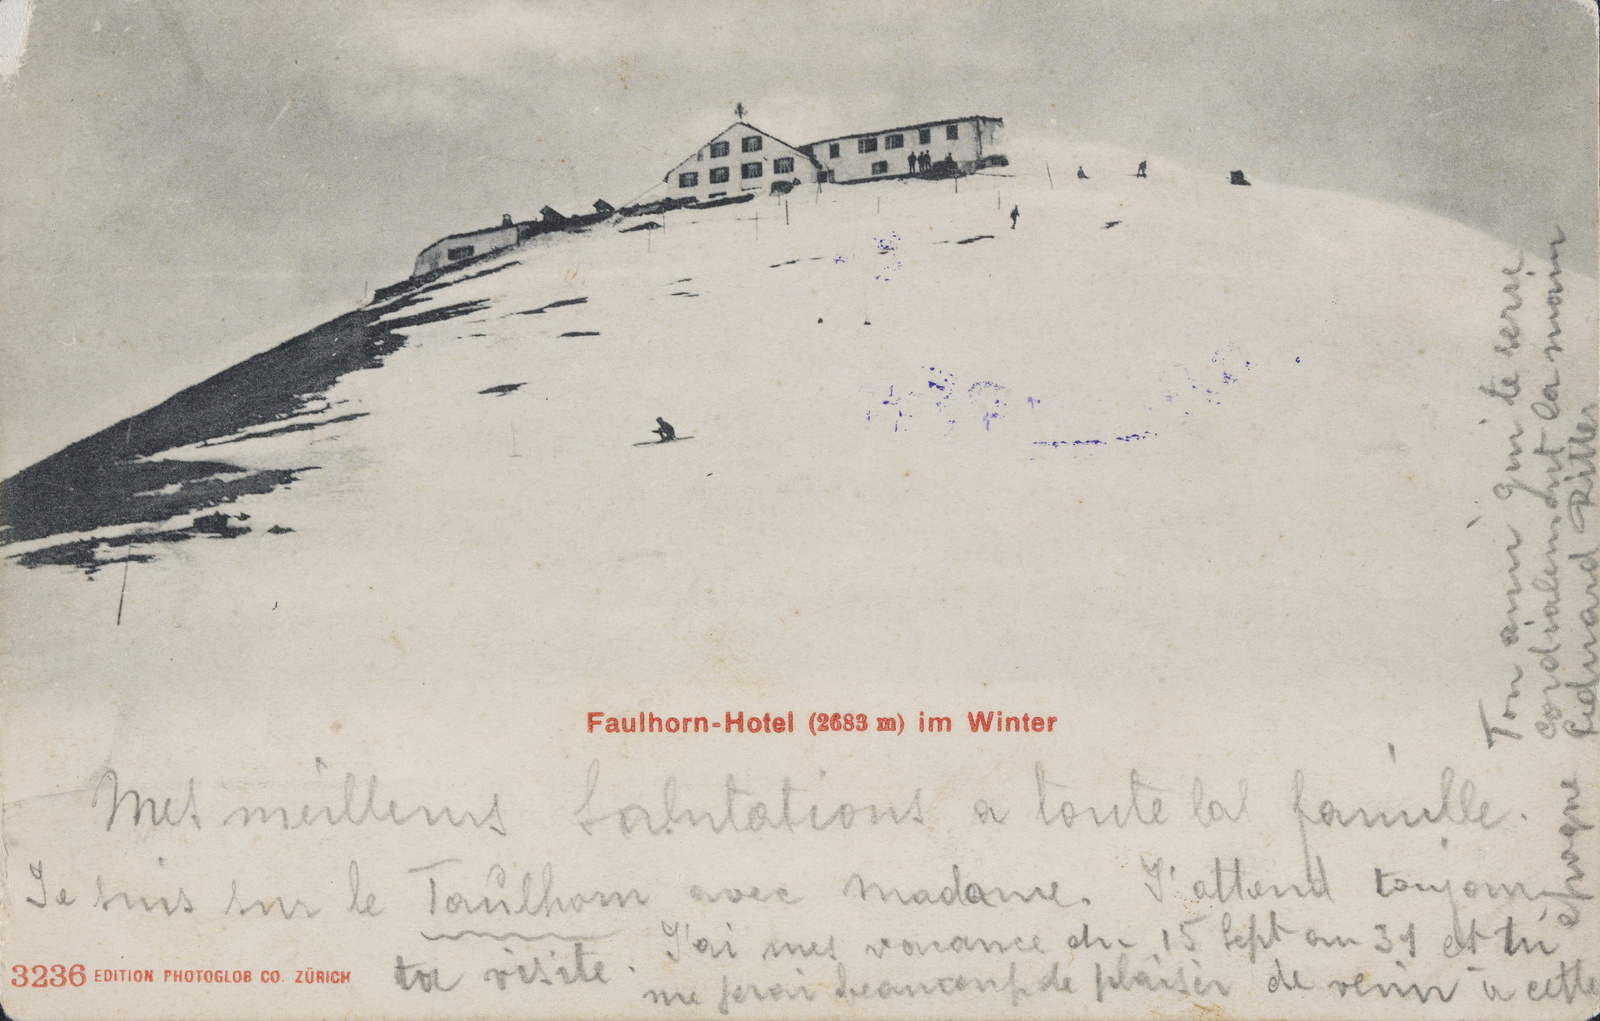 Faulhorn-Hotel (2683 m) im Winter
Mes meilleurs Salutations a toute la famille.
Je suis sur le Faulhorn avec Madame. J'attend toujour
ta visite. J'ai mes vacance du 15 Sept au 31 et tu
me ferai beaucoup de plaisir de venir à cette
epogne
Ton ami qui te serre
cordialement la main
Edouard Ritter
3236 EDITION PHOTOGLOB CO. ZÜRICH